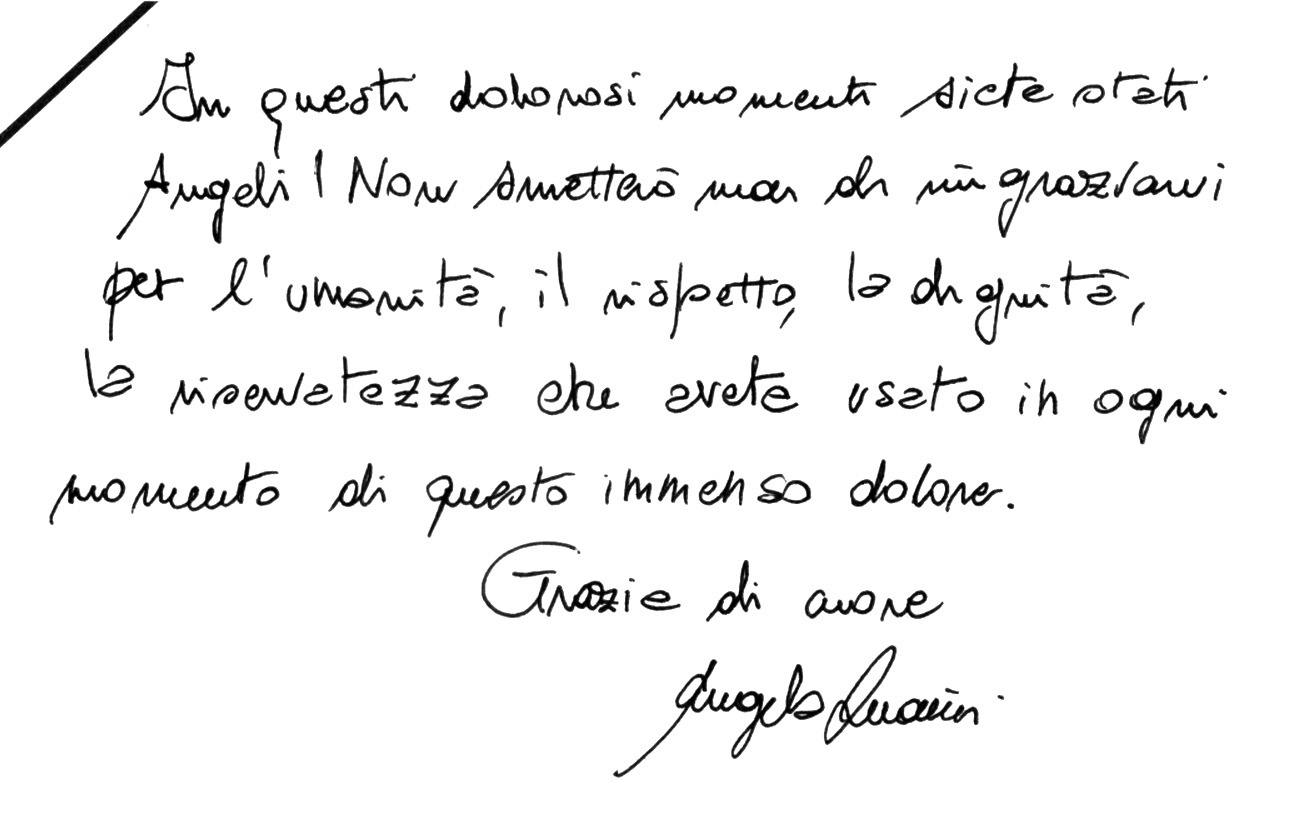 In questi dolorosi momenti siete stati
Angeli! Non smetterò mai di ringraziarvi
per l'umanità, il rispetto, la dignità,
la riservatezza che avete usato in ogni
momento di questo immenso dolore.
Grazie di cuore
Angela